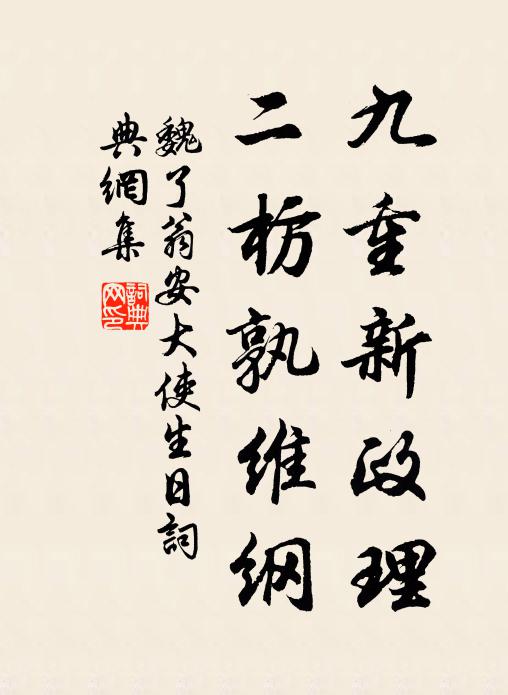 九重新政理
二枋孰维纲
魏了翁安大使生日詞
典網集
詞典網印